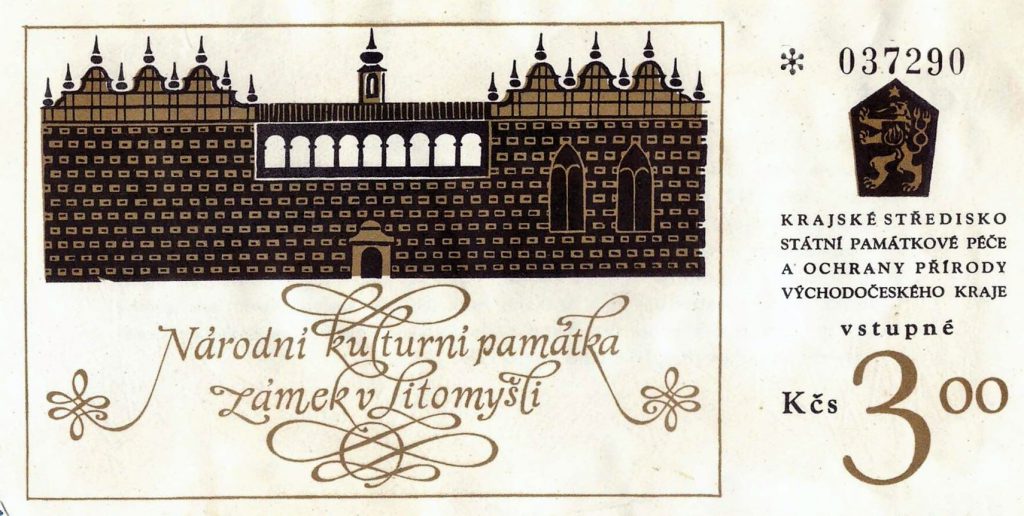 Národní kulturní památka
zámek v Litomyšli
* 037290
KRAJSKÉ STŘEDISKO
STÁTNÍ PAMÁTKOVÉ PÉČE
A OCHRANY PŘÍRODY
VÝCHODOČESKÉHO KRAJE
vstupné
Kčs 3 00